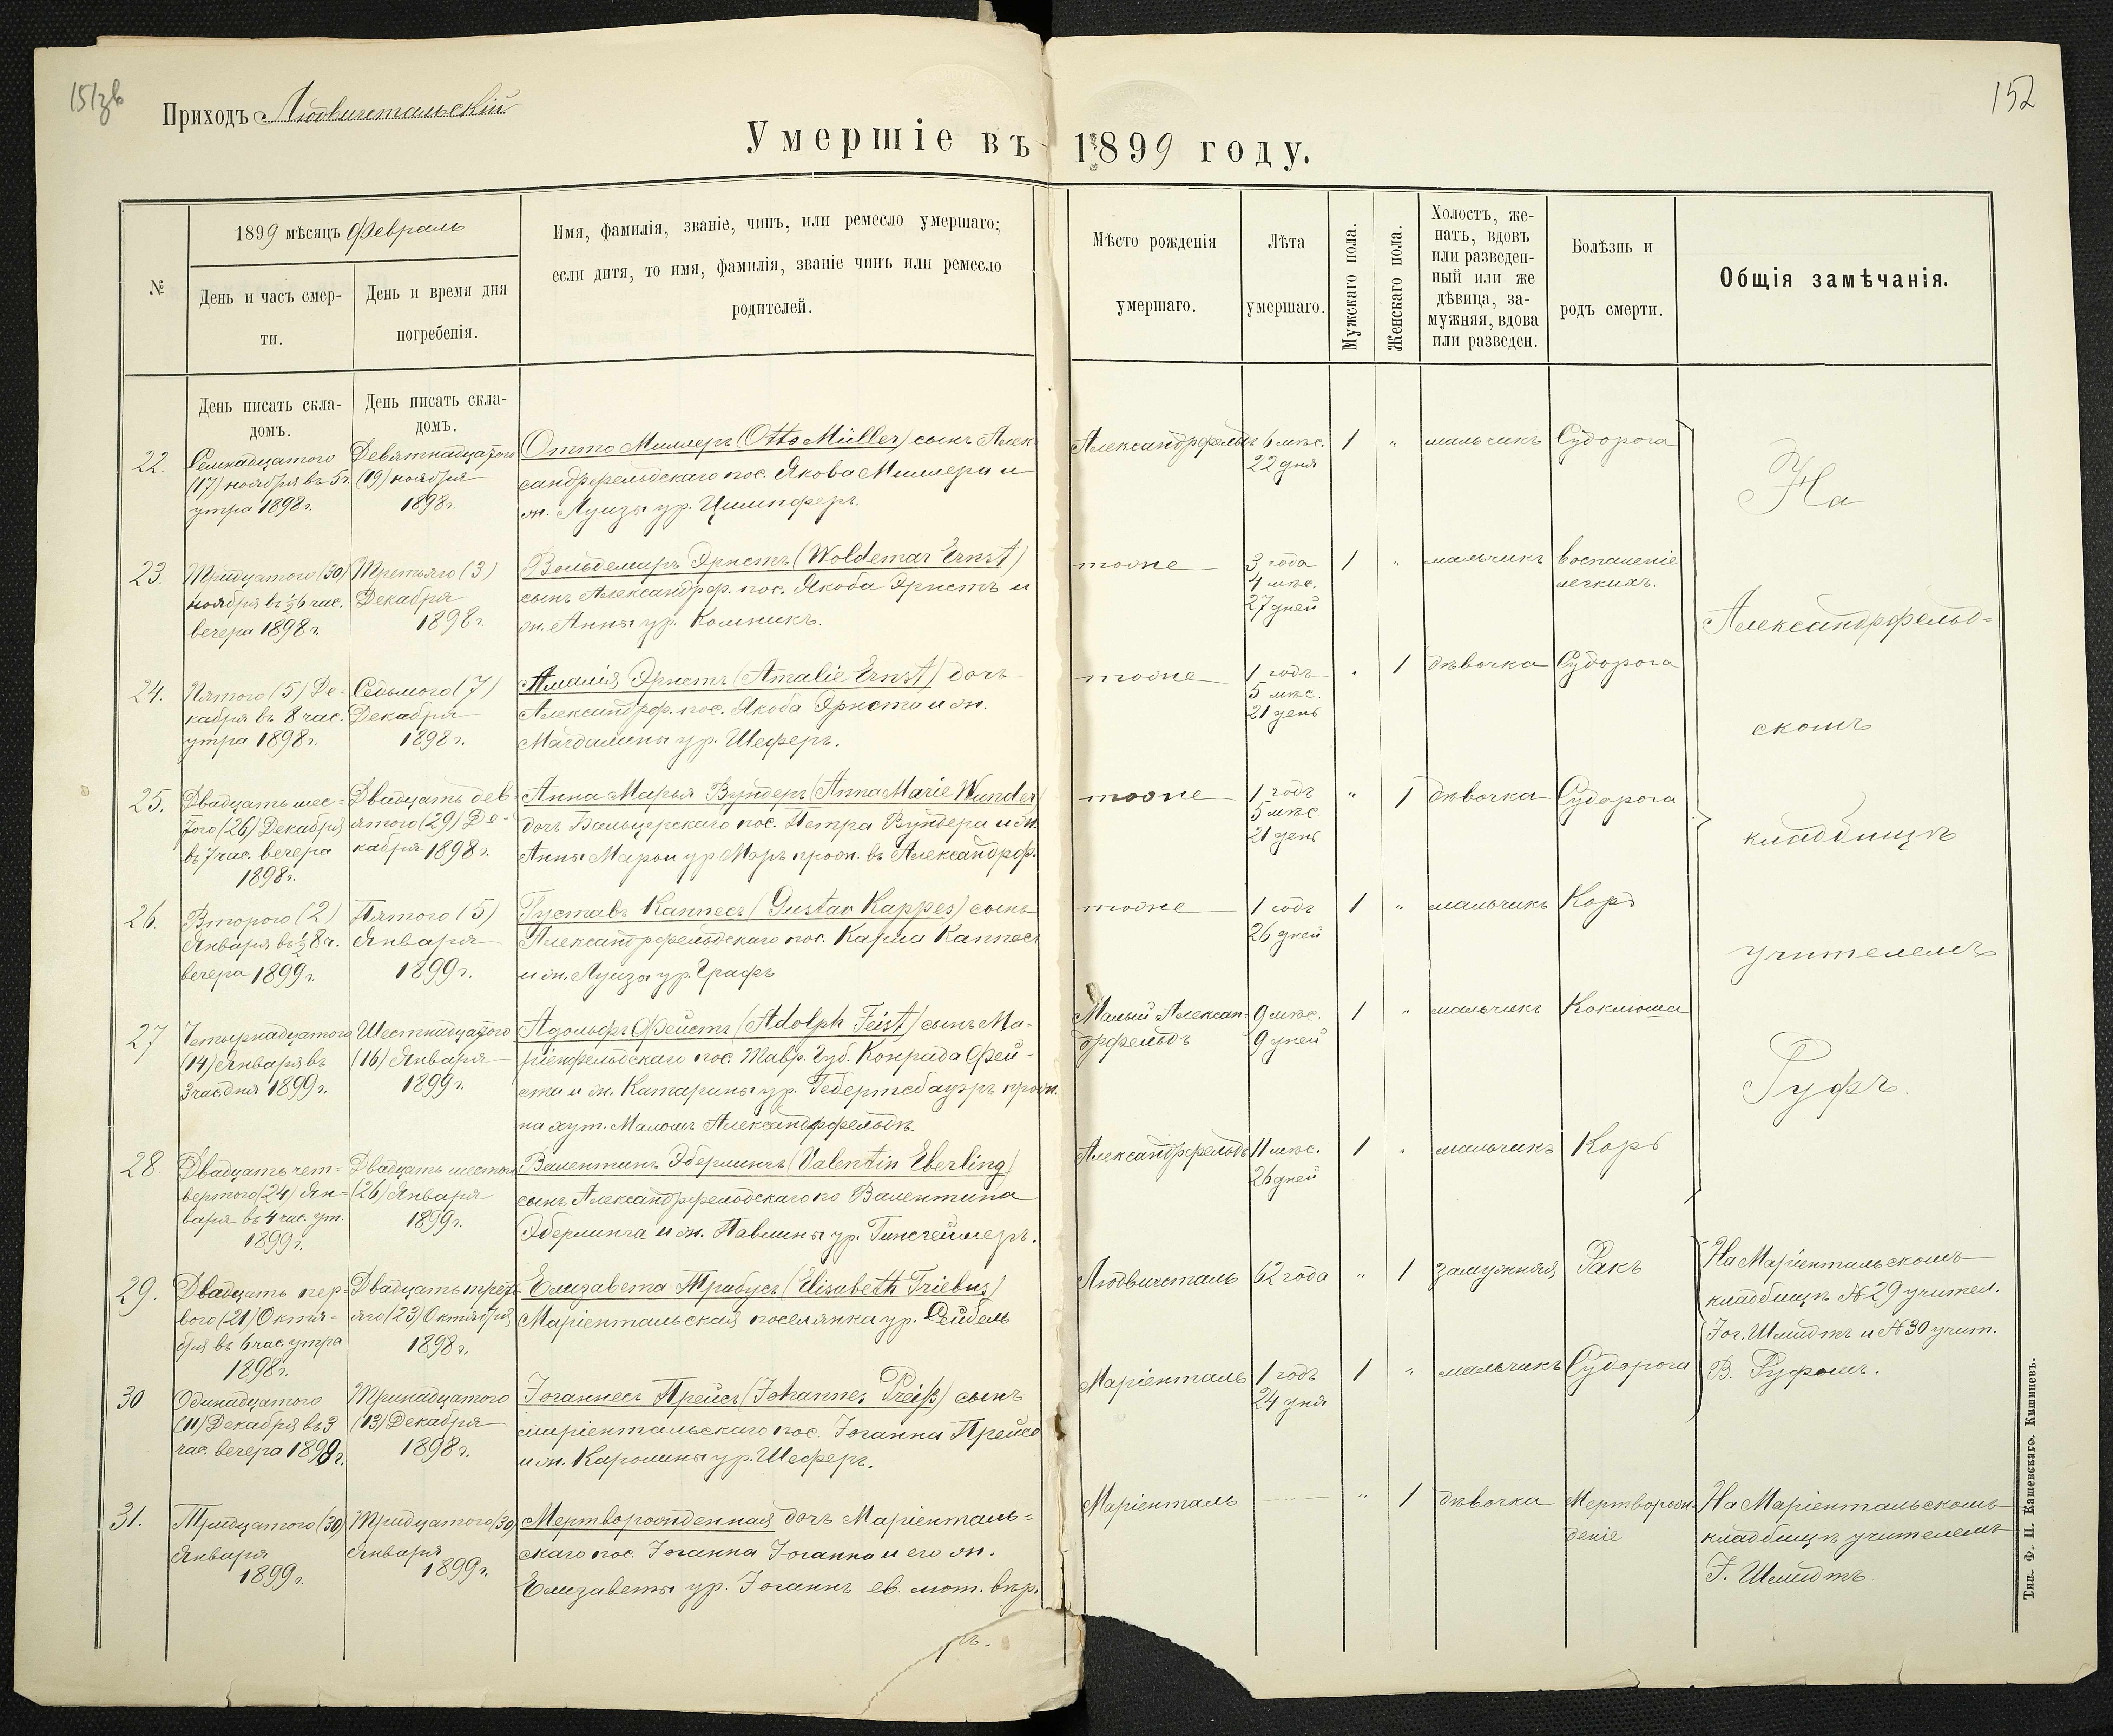 151зв
152
Приходъ Людвигстальскій
Умершіе въ 1899 году.
№
1899 мѣсяцъ Февраль
День и часъ смер-
ти.
День и время дня
погребенія.
Имя, фамилія, званіе, чинъ, или ремесло умершаго;
если дитя, то имя, фамилія, званіе чинъ или ремесло
родителей.
Мѣсто рожденія
умершаго.
Лѣта
умершаго.
Мужскаго пола.
Женскаго пола.
Холостъ, же-
натъ, вдовъ
или разведен-
ный или же
дѣвица, за-
мужняя, вдова
или разведен.
Болѣзнь и
родъ смерти.
Общія замѣчанія.
День писать скла-
домъ.
День писать скла-
домъ.
22.
Семнадцатого
(17) ноября въ 5 ч.
утра 1898 г.
Девятнадцатого
(19) ноября
1898 г.
Отто Миллеръ (Otto Müller) сынъ Алек
сандрфельдскаго пос. Якова Миллера и
ж. Луизы ур. Цимпферъ.
Александрфельдъ
6 мѣс.
22 дня
1
"
мальчикъ
Судорога
23.
Тридцатого (30)
ноября въ ½6 час.
вечера 1898 г.
Третьяго (3)
Декабря
1898 г.
Вольдемаръ Эрнстъ (Woldemar Ernst)
сынъ Александрф. пос. Якоба Эрнстъ и
ж. Анны ур. Колникъ.
тоже
3 года
4 мѣс.
27 дней
1
"
мальчикъ
воспаленіе
легкихъ.
24.
Пятого (5) Де-
кабря въ 8 час.
утра 1898 г.
Седьмого (7)
Декабря
1898 г.
Амалія Эрнстъ (Amalie Ernst) дочь
Александрф. пос. Якоба Эрнста и ж.
Магдалины ур. Шеферъ.
тоже
1 годъ
5 мѣс.
21 день
"
1
дѣвочка
Судорога
25.
Двадцать шес-
того (26) Декабря
въ 7 час. вечера
1898 г.
Двадцать дев-
ятого (29) Де-
кабря 1898 г.
Анна Марья Вундеръ (Anna Marie Wunder)
дочь Вальцерскаго пос. Петра Вундера и ж.
Анны Марьи ур Моръ прож. въ Александрф.
тоже
1 годъ
5 мѣс.
21 день
"
1
дѣвочка
Судорога
26.
Второго (2)
Января въ ½8 ч.
вечера 1899 г.
Пятого (5)
Января
1899 г.
Густавъ Каппесъ (Gustav Kappes) сынъ
Александрфельдскаго пос. Карла Каппесъ
и ж. Луизы ур. Графъ
тоже
1 годъ
26 дней
1
"
мальчикъ
Корь
27
Четырнадцатого
(14) Января въ
3 час. дня 1899 г.
Шестнадцатого
(16) Января
1899 г.
Адольфъ Фейстъ (Adolph Feist) сынъ Ма-
ріенфельдскаго пос. Тавр. Губ. Конрада Фей-
ста и ж. Катарины ур. Гебертсбауэръ прож.
на хут. Маломъ Александрфельдѣ.
Малый Алексан-
дрфельдъ
9 мѣс.
9 дней
1
"
мальчикъ
Коклюша
28.
Двадцать чет-
вертого (24) Ян-
варя въ 4 час. ут.
1899 г.
Двадцать шестого
(26) Января
1899 г.
Валентинъ Эберлингъ (Valentin Eberling)
сынъ Александрфельдскаго по Валентина
Эберлинга и ж. Павлины ур. Гинсгеймеръ.
Александрфельдъ
11 мѣс.
26 дней
1
"
мальчикъ
Корь
На
Александрфельд-
скомъ
кладбищѣ
учителемъ
Руфъ.
29.
Двадцать пер-
вого (21) Октя-
бря въ 6 час. утра
1898 г.
Двадцать треть
яго (23) Октября
1898 г.
Елизавета Трибусъ (Elisabeth Triebus)
Маріентальская поселянка ур. Сейбель
Людвигсталь
62 года
"
1
замужняя
Ракъ
На Маріентальскомъ
кладбищѣ №29 учител.
Іог. Шмидтъ и №30 учит.
В. Руфомъ.
30
Одинадцатого
(11) Декабря въ 3
час. вечера 1898 г.
Тринадцатого
(13) Декабря
1898 г.
Іоганнесъ Прейсъ (Johannes Preiß) сынъ
маріентальскаго пос. Іоганна Прейса
и ж. Каролины ур. Шеферъ.
Маріенталь
1 годъ
24 дня
1
"
мальчикъ
Судорога
31.
Тридцатого (30)
Января
1899 г.
Тридцатого (30)
Января
1899 г.
Мертворожденная дочь Маріенталь-
скаго пос. Іоганна Іоганна и его ж.
Елизаветы ур. Іоганнъ ев. лют. вѣр.
Маріенталь
"
1
дѣвочка
Мертворож-
деніе
На Маріентальскомъ
кладбищѣ учителемъ
І. Шмидтъ
Тип. Ф. П. Кашевскаго. Кишиневъ.